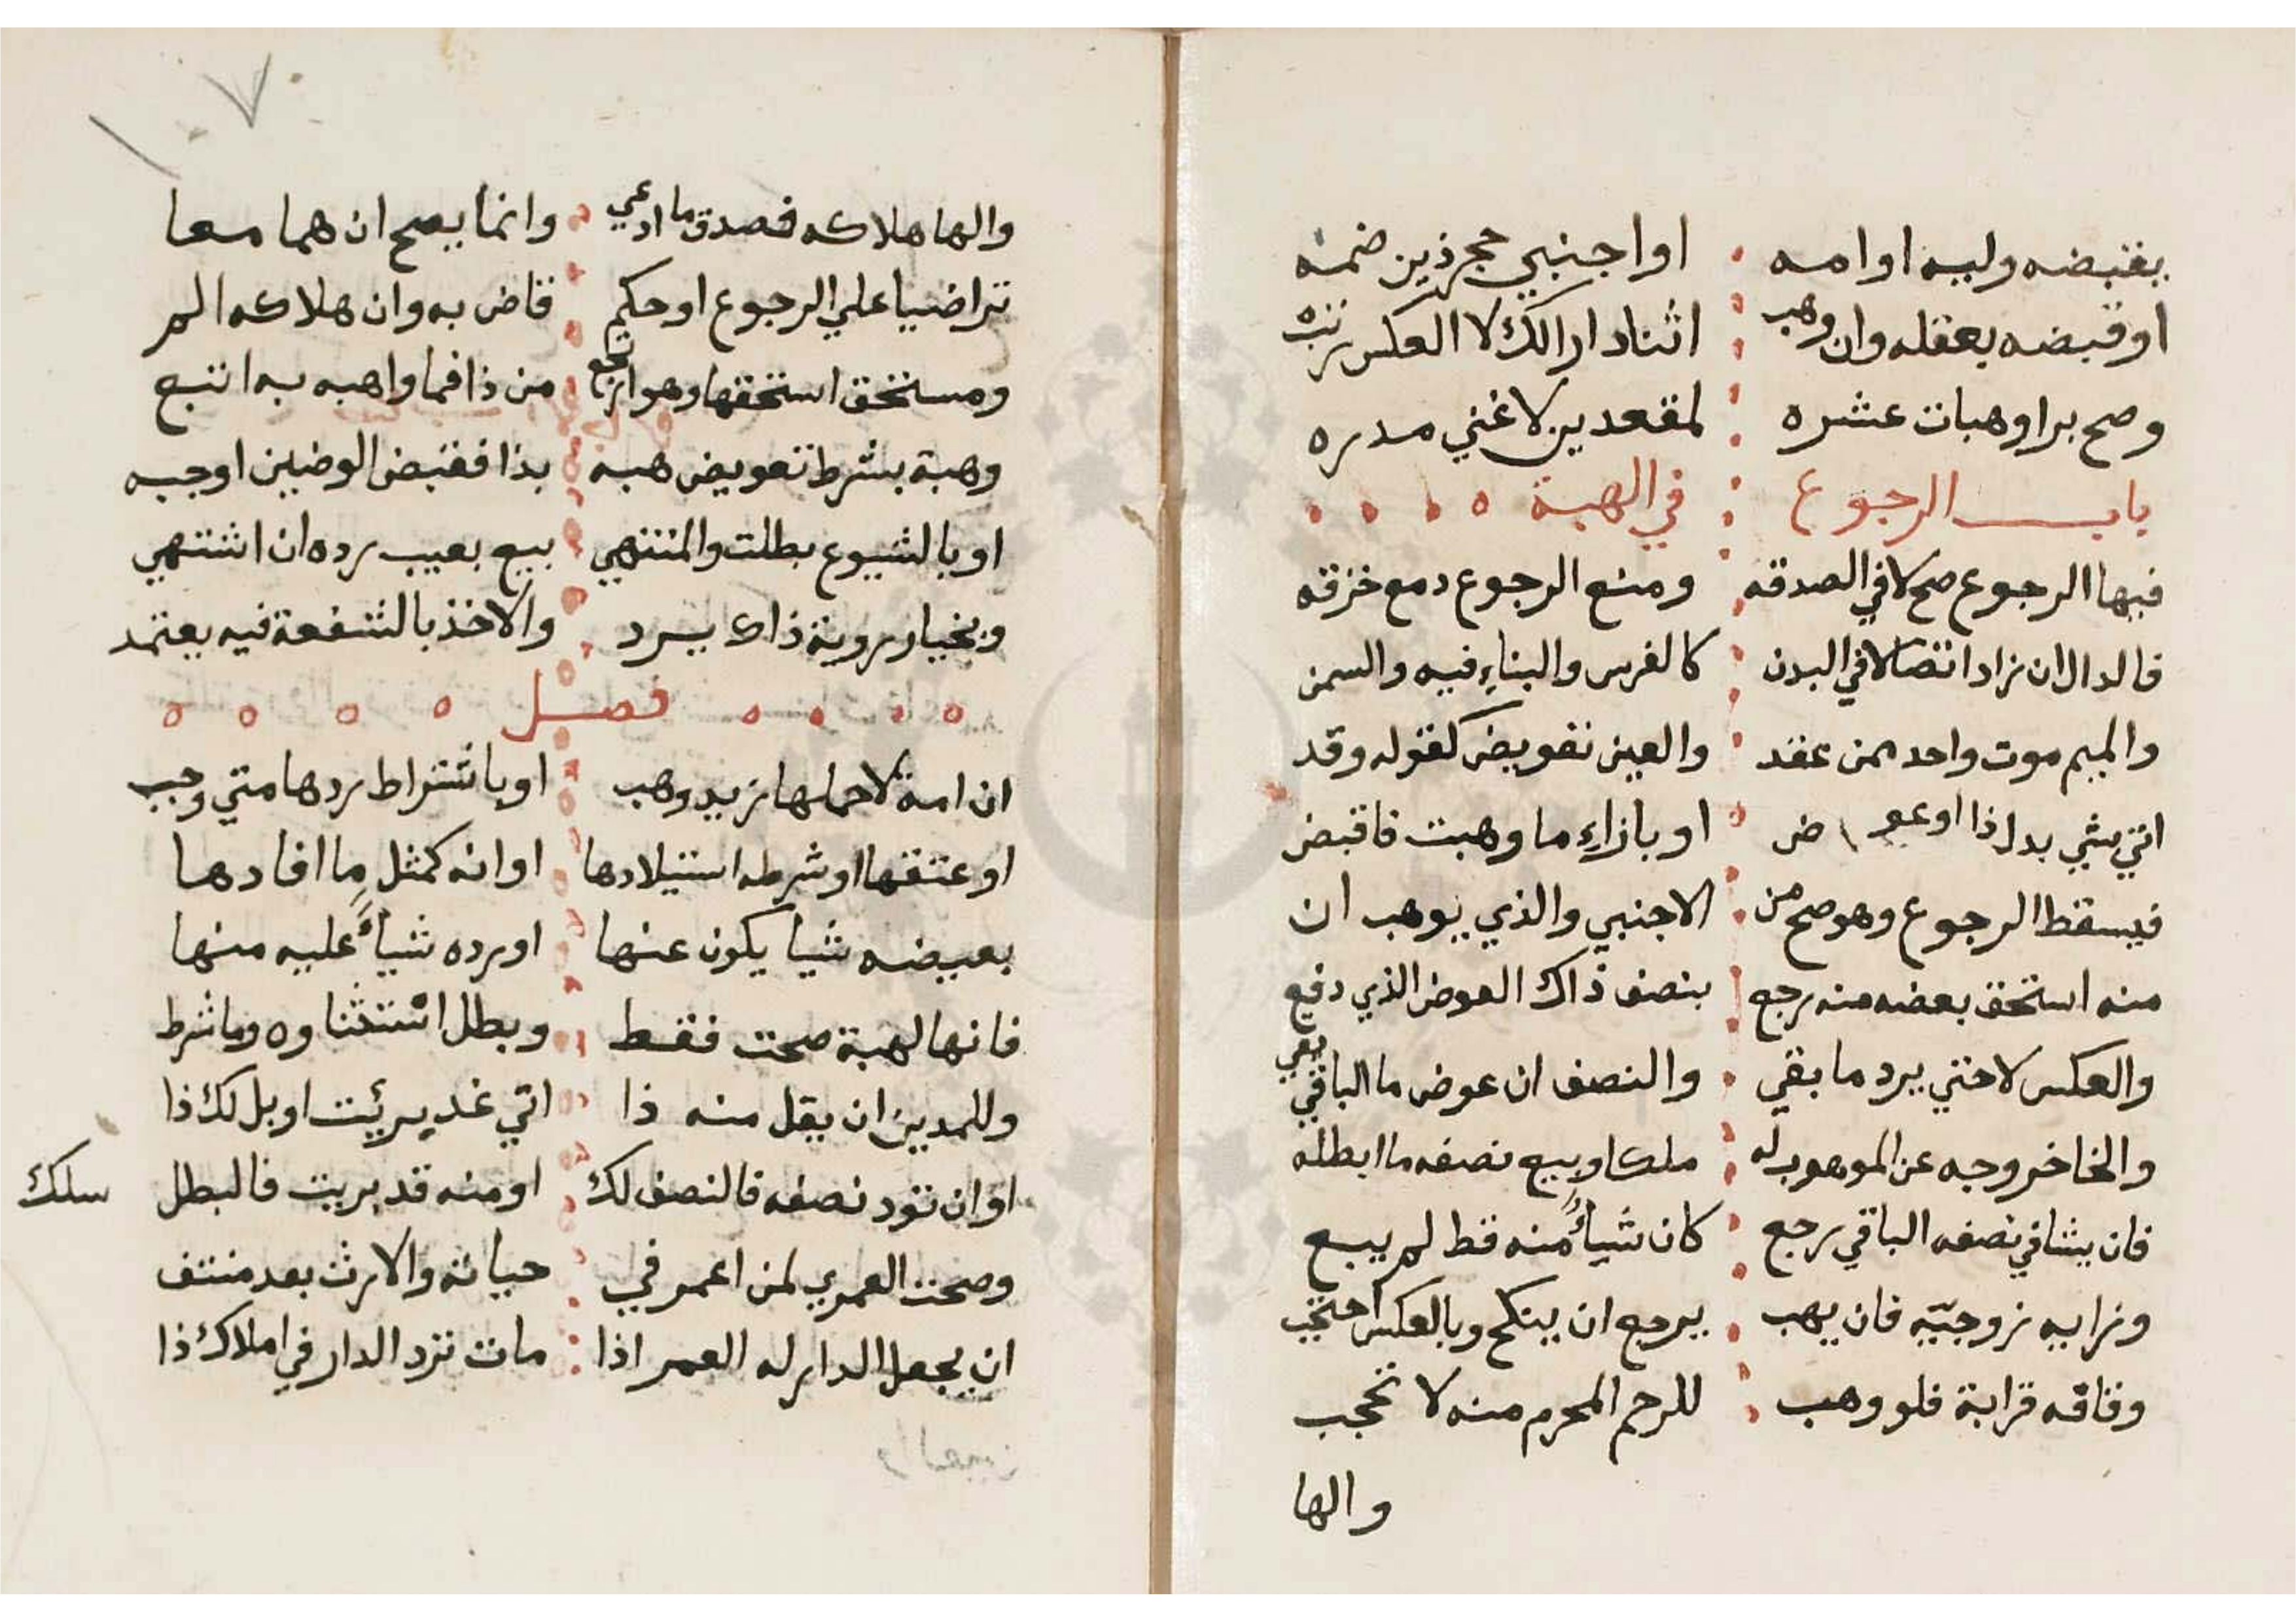 يقبضه وليه او امه او اجنبي حجر ذين ضمه
او قبضه بعقله وان وهب اثنا دارا لك لا العكس تزتب
وصح برا وهبات عشره لمقعدين لا غني مدره
باب الرجوع في الهبة
فيها الرجوع صح لا في الصدقه ومنع الرجوع دمع خزقه
فالدال ان زاد اتصالا في البدن كالغرس والبناء فيه والسمن
والميم موت واحد ممن عقد والعين تعويض كقوله وقد
اتي بشي بدل ذا او عوض او بازاء ما وهبت فاقبض
فيسقط الرجوع وهو صح من الاجنبي والذي يوهب ان
منه استحق بعضه منه رجع بنصف ذاك العوض الذي دفع
والعكس لا حتي يرد ما بقي والنصف ان عوض ما الباقي بقي
والخا خروجه عن الموهوب له ملكا وبيع نصفه ما ابطله
فان يشا في نصفه الباقي رجع كان شيأ منه قط لم يبع
وزايه زوجيّه فان يهب يرجع ان ينكح وبالعكس احتجب
وقافه قرابة فلو وهب للرحم المحرم منه لا تحجب
والها
١٠٧
والها هلاكه فصدق ما ادعي وانما يصح ان هما معا
تراضيا علي الرجوع او حكم قاض به وان هلاكه الم
ومستحق استحقها وهو ارتجع من ذا فما واهبه به اتبع
وهبة بشرط تعويض هبه بذا فقبض الوضين اوجبه
او بالشيوع بطلت والمنتهي بيع بعيب رده ان اشتهي
وبخيار روية ذاك يرد والاخذ بالشفعة فيه يعتمد
فصل
ان امة لا حملها زيد وهب او باشتراط ردها متي وجب
او عتقها او شرطه استيلادها او انه كمثل ما افادها
بعيضه شيا يكون عنها او رده شيأ عليه منها
فانها لهبة صحت فقط وبطل استثناوه وما شرط
وللمدين ان يقل منه ذا اتي غد برئت او بل لك ذا
او ان تود نصفه فالنصف لك او منه قد بريت فالبطل سلك
وصحت العمري لمن اعمر في حياته والارث بعد منتف
ان يجعل الدار له العمر اذا مات ترد الدار في املاك ذا